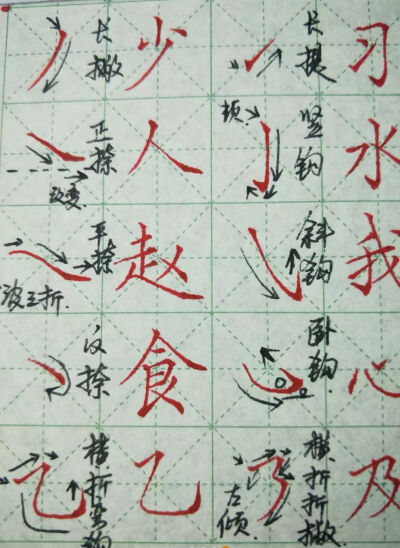 长撇 少 长提 习
正捺 人 顿 竖钩 水
平捺 赵 斜钩 我
一波三折
反捺 食 卧钩 心
横折弯钩 乙 左倾 横折折撇 及